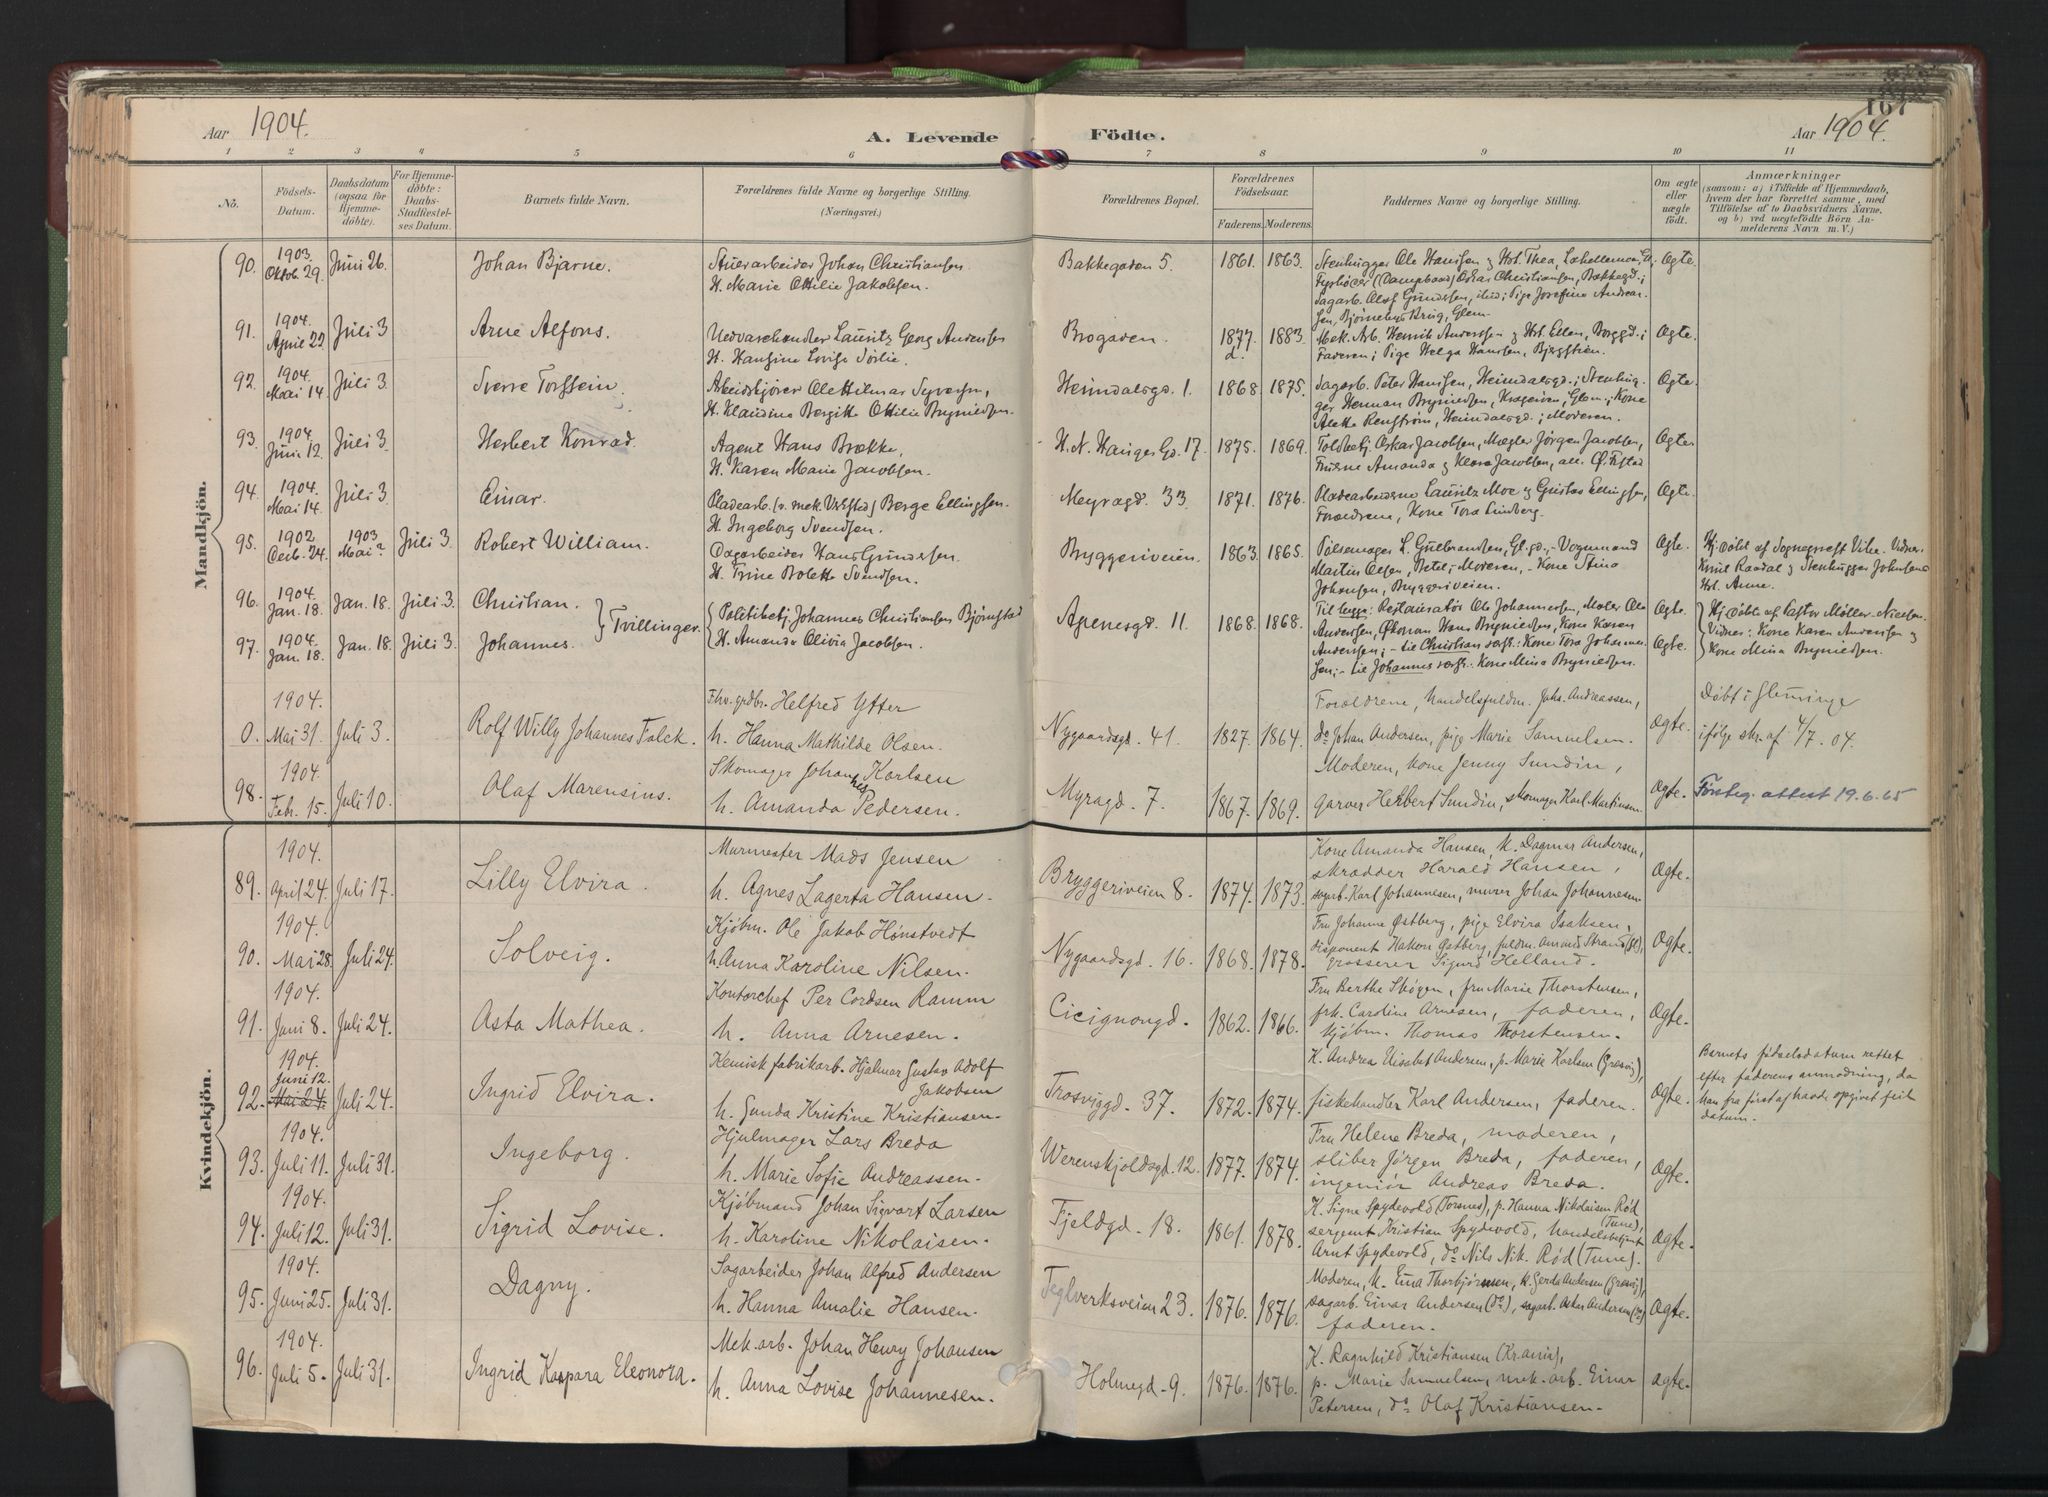 167
Aar 1904.
A. Levende Födte.
Aar 1904.
1 2 3 4 5 6 7 8 9 10 11
No.
Födsels-Datum.
Daabsdatum (ogsaa for Hjemmedöbte).
For Hjemmedöbte: Daabs-Stadfæstelses Datum.
Barnets fulde Navn.
Forældrenes fulde Navne og borgerlige Stilling. (Næringsvei.)
Forældrenes Bopæl.
Forældrenes Födselsaar.
Faderens. Moderens.
Faddernes Navne og borgerlige Stilling.
Om ægte eller uægte födt.
Anmærkninger
(saasom: a) i Tilfælde af Hjemmedaab, hvem der har forrettet samme, med Tilföielse af to Daabsvidners Navne, og b) ved uægtefödte Börn Anmelderens Navn m. V.)
Mandkjön.
90. 1903 Oktob. 29. Juni 26. Johan Bjarne.
Stuerarbeider Johan Christiansen
H. Marie Ottilie Jakobsen.
Bakkegaden 5. 1861. 1863.
Stenhugger Ole Hansen og Hst. Thea,
Fyrböder (Dampbaad) Oskar Christiansen, Bakkegd.;
Sagarb. Olaf Gundersen, ibid; Pige Josefine Andreassen, Glem.
Ægte.
91. 1904. April 22 Juli 3 Arne Alfons.
Vedvarehandler Lauritz Georg Andersen
H. Hansine Lovise Sörlie.
Brogaden. 1877. 1883.
Mek. Arb. Henrik Anderssen og Hst. Ellen, Borggd.;
Faderen; Pige Helga Hansen, Bjergstien.
Ægte.
92. 1904 Mai 14. Juli 3. Sverre Torstein.
Arbeidskjörer Ole Hilmar Syversen,
H. Klaudine Bergitte Ottilie Bryniedsen.
Heimdalsgd. 1. 1868. 1875.
Sagarb. Peter Hansen, Heimdalsgd.; Stenhugger Herman Bryniedsen, Glem.; Kone
Alette Renström, Heimdalsgd.; Moderen.
Ægte
93. 1904. Juni 12. Juli 3. Herbert Konrad.
Agent Hans Brække,
H. Karen Marie Jacobsen.
H. N. Hauges Gd. 17. 1875. 1869.
Toldbetj. Oskar Jacobsen, Mægler Jörgen Jacobsen,
Fruerne Amanda og Klara Jacobsen, alle Ø. Fstad
Ægte
94. 1904. Mai 14. Juli 3. Einar.
Pladearb. (v. mek. Verksted) Berge Ellingsen.
H. Ingeborg Svendsen.
Meyragd. 33 1871. 1876.
Pladearbeiderne Lauritz Moe og Gustav Ellingsen,
Forældrene, Kone Tora Lindberg.
Ægte.
95. 1902 Decb. 24. 1903 Mai? Juli 3. Robert William.
Dagarbeider Hans Gundersen.
H. Trine Bolette Svendsen.
Bryggeriveien. 1863. 1865.
Pölsemager L. Gulbrandsen, Gl. gd., Vognmand
Martin Olsen, Moderen, - Kone Stina
Johansen, Bryggeriveien.
Ægte.
Hj. döbt af Sogneprest Vihe. Vidner:
Knut Raadal og Stenhugger Johnsens
Hst. Anne.
96. 1904. Jan. 18. Jan. 18. Juli 3. Christian.
97. 1904. Jan. 18. Jan. 18. Juli 3. Johannes. Tvillinger.
Politibetj. Johannes Christiansen Bjørnstad
H. Amanda Olivia Jacobsen.
Agnesgd. 11. 1868. 1868.
Til begge: Restauratör Ole Johannesen, Maler Ole
Anderssen, Hans Bryniedsen, Kone Karen
Anderssen; - til Christian særsk.: Kone Tora Johannessen; - til Johannes særsk.: Kone Mina Bryniedsen.
Ægte.
Ægte.
Hj. döbt af Pastor Möller-Nielsen.
Vidner: Kone Karen Anderssen og
Kone Mina Bryniedsen.
0. 1904. Mai 31. Juli 3. Rolf Willy Johannes Falck.
Fhv. grdbr. Helfred Ytter
h. Hanna Mathilde Olsen.
Nygaardsgd. 41. 1827. 1864.
Forældrene, handelsfuldm. Johs. Andreassen,
do Johan Andersen, pige Marie Samuelsen.
Ægte.
Døbt i Glemminge
ifølge skr. af 4/7. 04.
98. 1904. Febr. 15. Juli 10. Olaf Marensius.
Skomager Johannes Karlsen
h. Amanda Pedersen.
Myragd. 7. 1867. 1869.
Moderen, kone Jenny Sundin,
garver Herbert Sundin, skomager Karl Martinsen.
Ægte.
Førsteg. attest 19.6.65
Kvindekjön.
89. 1904. April 24. Juli 17. Lilly Elvira.
Murmester Mads Jensen
h. Agnes Lagerta Hansen.
Bryggeriveien 8. 1874. 1873.
Kone Amanda Hansen, k. Dagmar Andersen,
skrædder Harald Hansen,
sagarb. Karl Johannesen, murer Johan Johannesen
Ægte.
90. 1904. Mai 28. Juli 24. Solveig.
Kjøbm. Ole Jakob Hønstvedt
h. Anna Karoline Nilsen.
Nygaardsgd. 16. 1868. 1878.
Fru Johanne Østberg, pige Elvira Isaksen,
disponent Hakon Østberg, fuldm. Amund Strand (Gl),
grosserer Sigurd Helland.
Ægte.
91. 1904. Juni 8. Juli 24. Asta Mathea.
Kontorchef Per Cordsen Ramm
h. Anna Arnesen.
Cicignongd. 1862. 1866.
Fru Berthe Skøgen, fru Marie Thorstensen,
frk. Caroline Arnesen, faderen,
kjøbm. Thomas Thorstensen.
Ægte.
92. 1904. Juni 12. Mai 24. Juli 24. Ingrid Elvira.
Kemisk fabrikarb. Hjalmar Gustav Adolf
Jakobsen
h. Gunda Kristine Kristiansen.
Trosviggd. 37. 1872. 1874.
K. Andrea Elisabet Andersen, p. Marie Karlsen (Gresvig),
fiskehandler Karl Andersen, faderen.
Ægte.
Barnets fødselsdatum rettet
efter faderens anmodning, da
han fra først af havde opgivet feil
datum.
93. 1904. Juli 11. Juli 31. Ingeborg.
Hjulmager Lars Breda
h. Marie Sofie Andreassen.
Werenskjoldsgd. 12. 1877. 1874.
Fru Helene Breda, moderen,
sliber Jörgen Breda, faderen,
ingeniør Andreas Breda.
Ægte.
94. 1904. Juli 12. Juli 31. Sigrid Lovise.
Kjøbmand Johan Sigvart Larsen
h. Karoline Nikolaisen.
Fjeldgd. 18. 1861. 1878.
K. Signe Spydevold (Torsnes), p. Hanna Nikolaisen Rød
(Tune),
sergent Kristian Spydevold, handelsbetjent
Arnt Spydevold, do Nils Nik. Rød (Tune).
Ægte.
95. 1904. Juni 25. Juli 31. Dagny.
Sagarbeider Johan Alfred Andersen
h. Hanna Amalie Hansen.
Teglverksveien 23. 1876. 1876.
Moderen, k. Eina Thorbjørnsen, k. Gerda Andersen (Gresvig),
sagarb. Einar Andersen (do), sagarb. Astar Andersen (do)
faderen.
Ægte.
96. 1904. Juli 5. Juli 31. Ingrid Kaspara Eleonora.
Mek. arb. Johan Henry Johansen
h. Anna Lovise Johannesen.
Holmegd. 9. 1876. 1876.
K. Ragnhild Kristiansen (Kr.ania),
p. Marie Samuelsen, mek. arb. Einar
Petersen, do Olaf Kristiansen.
Ægte.